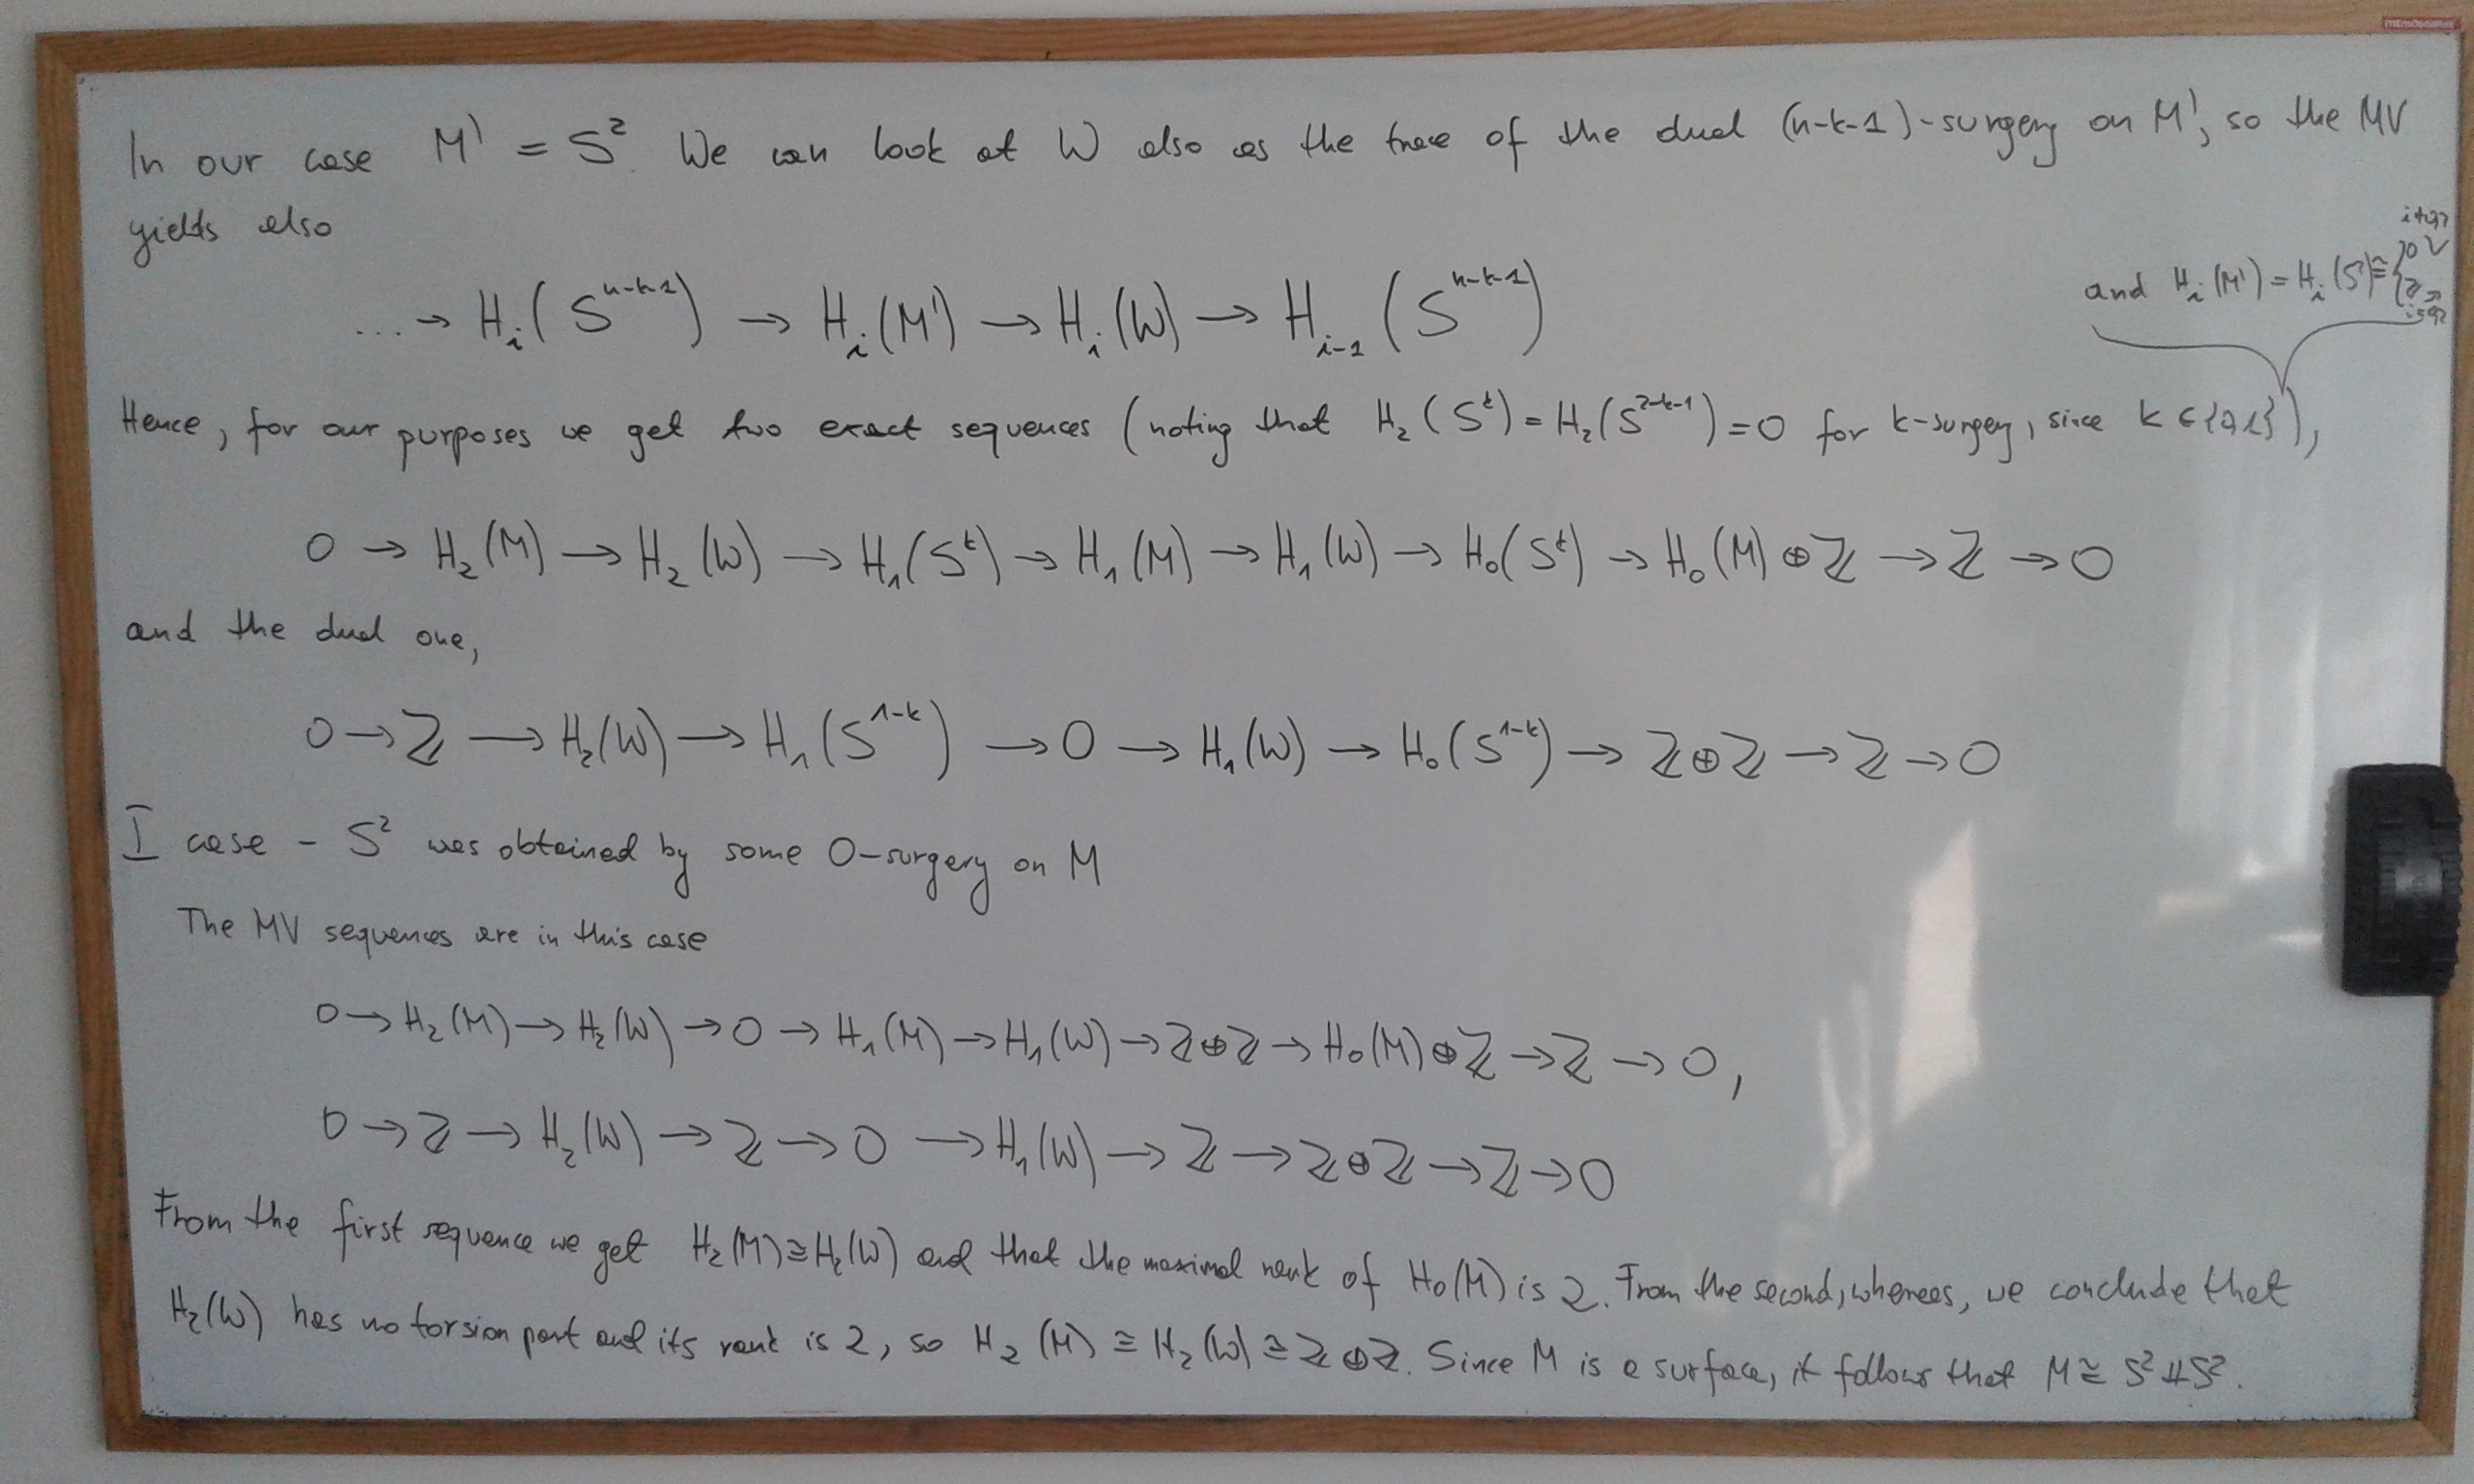 In our case M' = S². We can look at W also as the trace of the dual (n-k-1)-surgery on M', so the MV
yields also
... → Hᵢ(Sⁿ⁻ᵏ⁻¹) → Hᵢ(M') → Hᵢ(W) → Hᵢ₋₁(Sⁿ⁻ᵏ⁻¹)
and Hᵢ(M') = Hᵢ(S²) ≅ { 0
Hence, for our purposes we get two exact sequences (noting that H₂(Sᵏ) = H₂(S²⁻ᵏ⁻¹) = 0 for k-surgery, since k ∈ {0,1}),
0 → H₂(M) → H₂(W) → H₁(Sᵏ) → H₁(M) → H₁(W) → H₀(Sᵏ) → H₀(M) ⊕ ℤ → ℤ → 0
and the dual one,
0 → ℤ → H₂(W) → H₁(S¹⁻ᵏ) → 0 → H₁(W) → H₀(S¹⁻ᵏ) → ℤ ⊕ ℤ → ℤ → 0
I case - S² was obtained by some 0-surgery on M
The MV sequences are in this case
0 → H₂(M) → H₂(W) → 0 → H₁(M) → H₁(W) → ℤ ⊕ ℤ → H₀(M) ⊕ ℤ → ℤ → 0,
0 → ℤ → H₂(W) → ℤ → 0 → H₁(W) → ℤ → ℤ ⊕ ℤ → ℤ → 0
From the first sequence we get H₂(M) ≅ H₂(W) and that the maximal rank of H₀(M) is 2. From the second, whereas, we conclude that
H₂(W) has no torsion part and its rank is 2, so H₂(M) ≅ H₂(W) ≅ ℤ ⊕ ℤ. Since M is a surface, it follows that M ≅ S² ⨿ S².